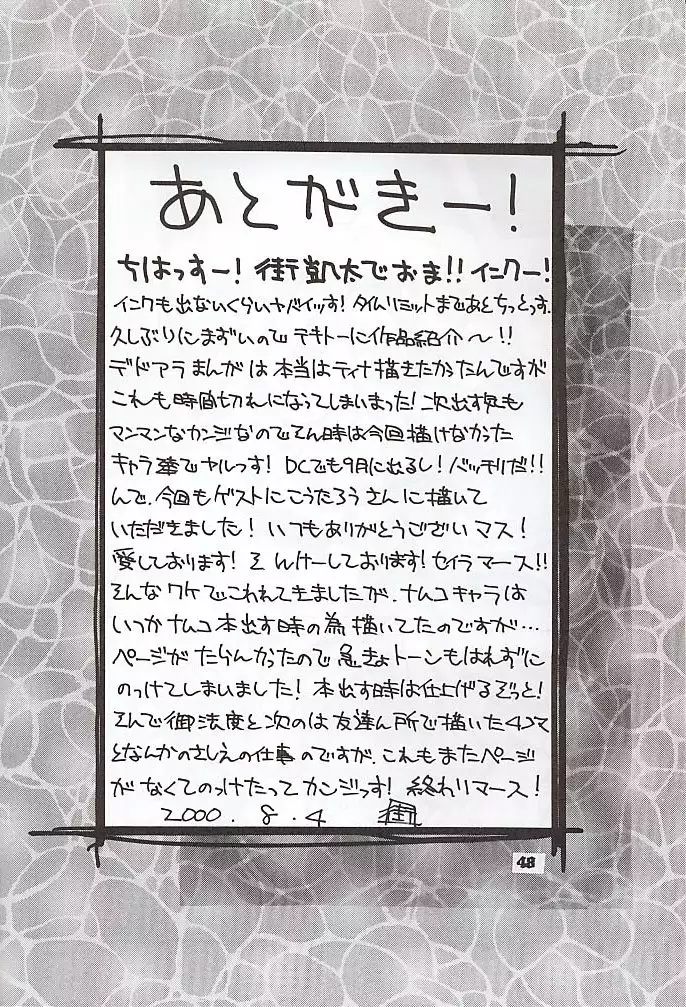 あとがきー!
ちはっすー! 街凱太でおま!! イニクー!
インクも出ないくらいヤバイッす! タイムリミットまであとちっとっす.
久しぶりにまずいのでテキトーに作品紹介〜!!
デドアラまんがは本当はティナ描きたかったんですが
これも時間切れになってしまいまった! 次出す
マンマンなカンジなのでそん時は今回描けなかった
キャラ達でヤルっす! DCでも9月に出るし! バッチリだ!!
んで、今回もゲストにこうたろうさんに描いて
いただきました! いつもありがとうございマス!
愛しております! そんけーしております! セイラマース!!
そんなワケでこわれてきましたが、ナムコキャラは
いつかナムコ本出す時の為描いてたのですが…
ページがたらんかったので急きょトーンもはれずに
のっけてしまいました! 本出す時は仕上げるぞっと!
そんで御法度と次のは友達ん所で描いた4コマ
となんかのさしえの仕事のですが、これもまたページ
がなくてのっけたってカンジっす! 終わりマース!
2000.8.4 街
48